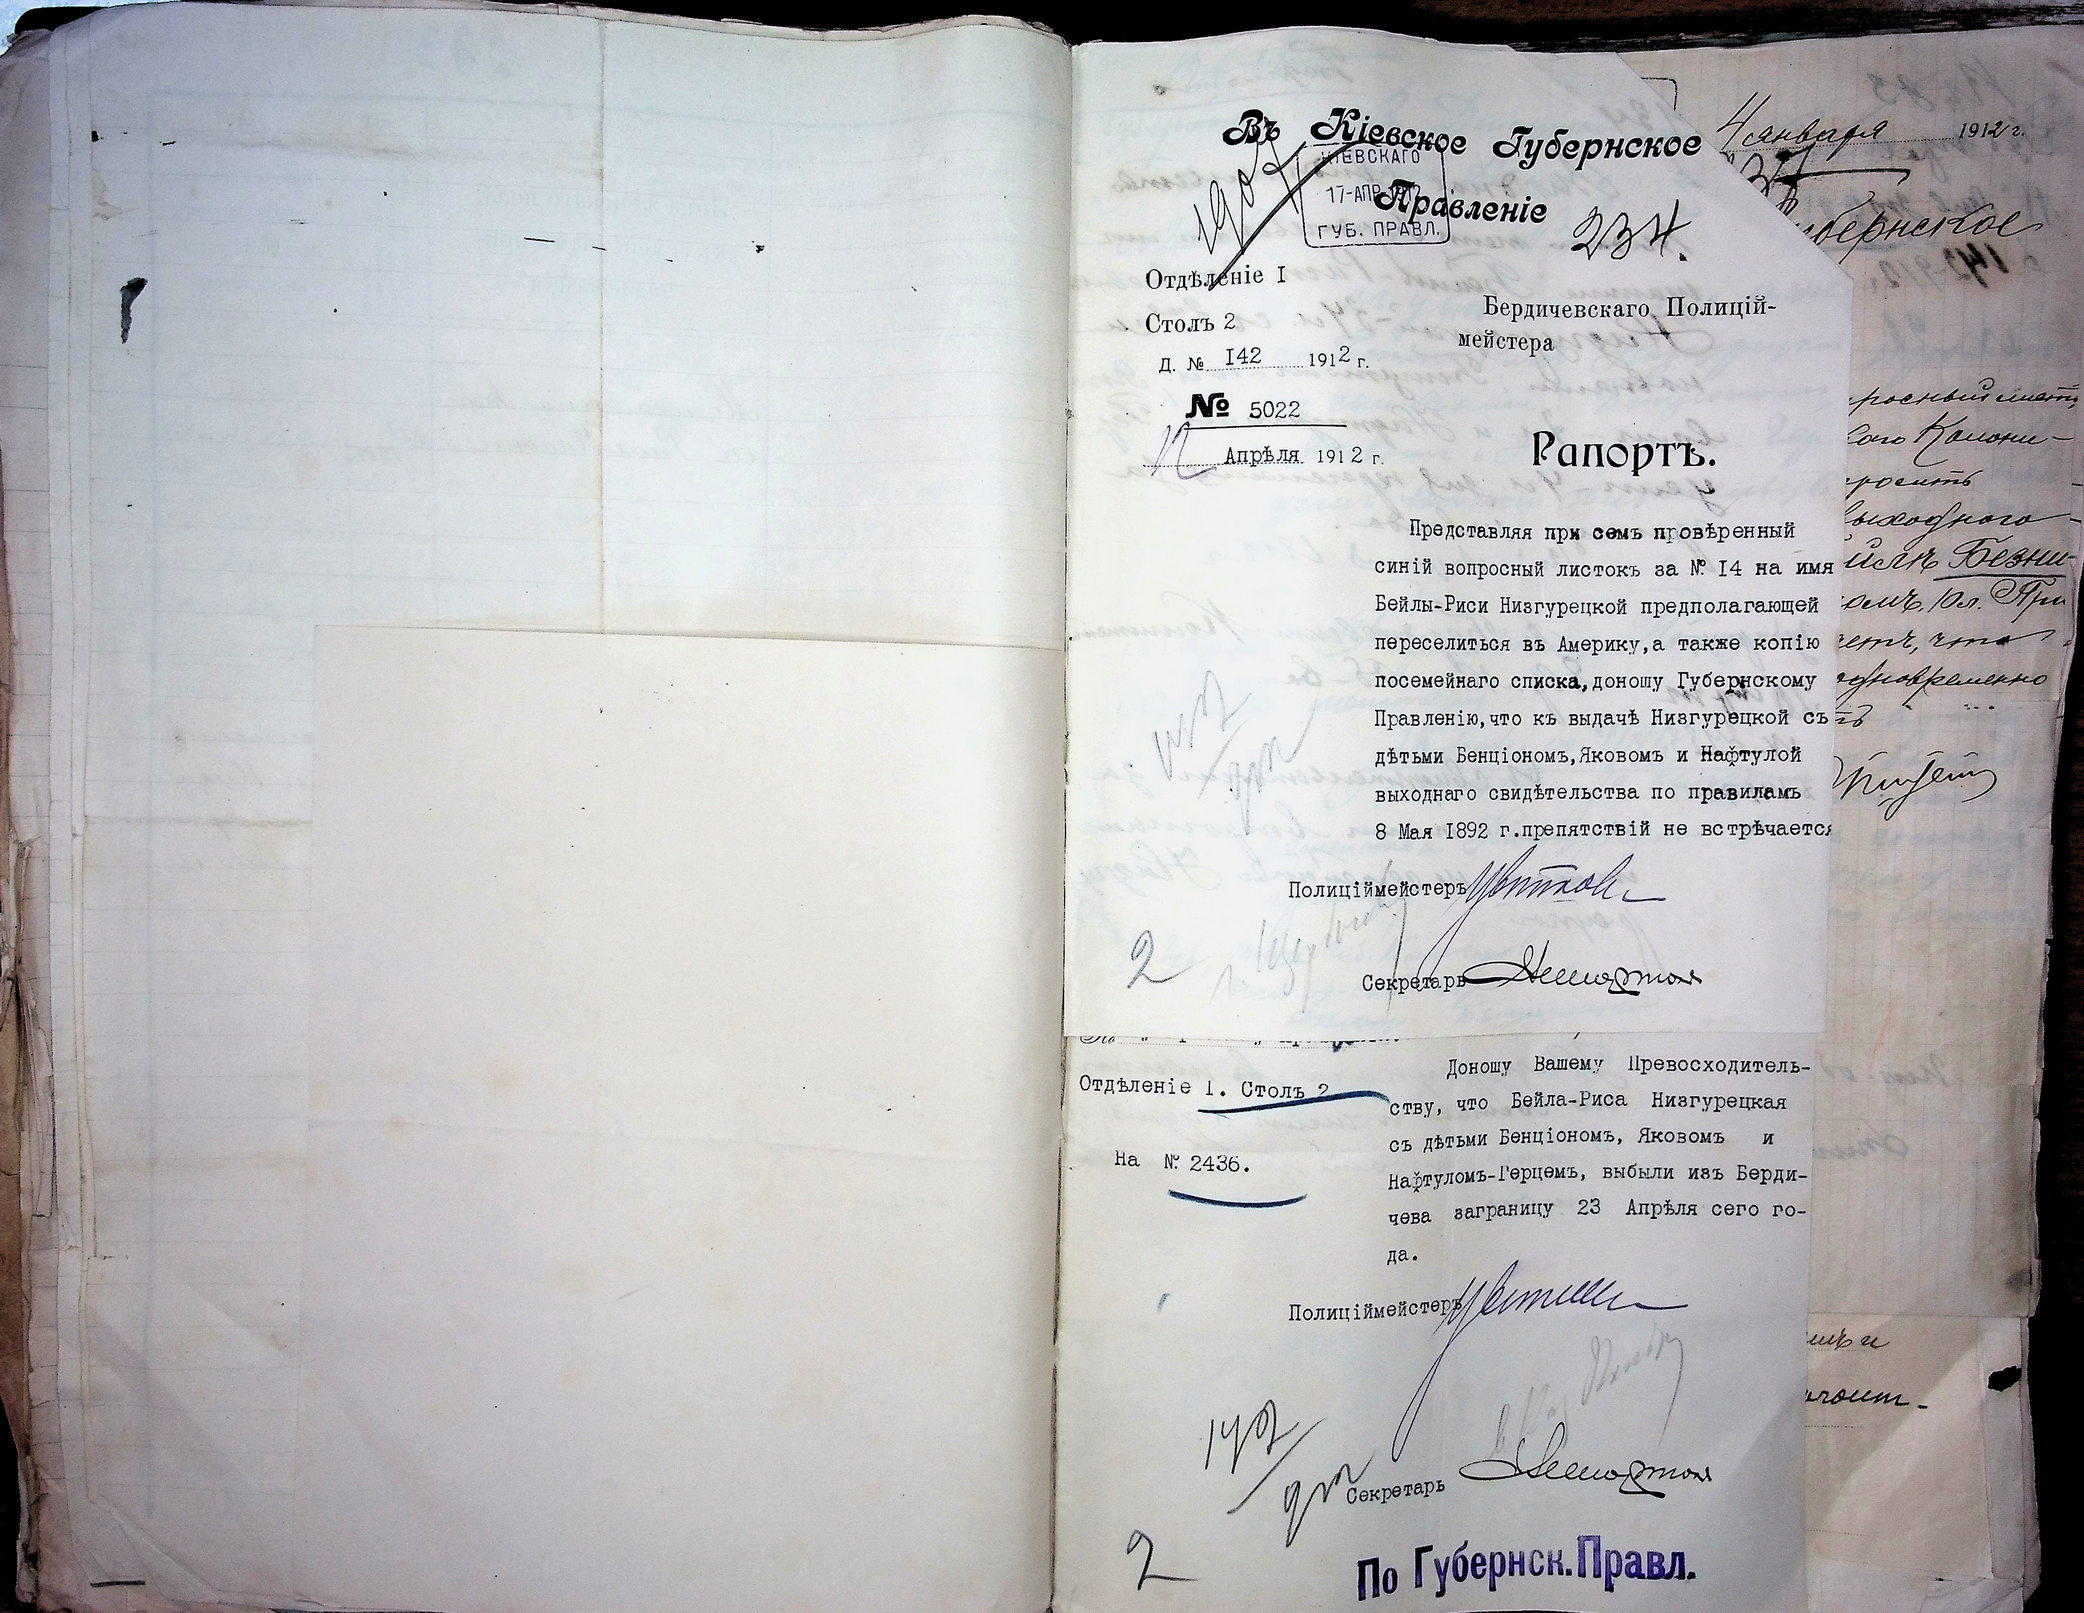 Въ Кіевское Губернское
Правленіе
КІЕВСКАГО
17-АПР.1912
ГУБ. ПРАВЛ.
234.
Отдѣленіе I
Столъ 2
Д. № 142 1912 г.
№ 5022
12 Апрѣля 1912 г.
Бердичевскаго Полицій-
мейстера
Рапортъ.
Представляя при семъ провѣренный
синій вопросный листокъ за № I4 на имя
Бейлы-Риси Низгурецкой предполагающей
переселиться въ Америку,а также копію
посемейнаго списка,доношу Губернскому
Правленію,что къ выдачѣ Низгурецкой съ
дѣтьми Бенціономъ,Яковомъ и Нафтулой
выходнаго свидѣтельства по правиламъ
8 Мая I892 г.препятствій не встрѣчается
Полиціймейстеръ
2
Секретарь
Отдѣленіе 1. Столъ 2
На № 2436.
Доношу Вашему Превосходитель-
ству, что Бейла-Риса Низгурецкая
съ дѣтьми Бенціономъ, Яковомъ и
Нафтуломъ-Герцемъ, выбыли изъ Берди-
чева заграницу 23 Апрѣля сего го-
да.
Полиціймейстеръ
Секретарь
2
По Губернск.Правл.
4 января 1912 г.
губернское
просный листъ
Колони-
росить
выходного
Безни-
етъ, что
одновременно